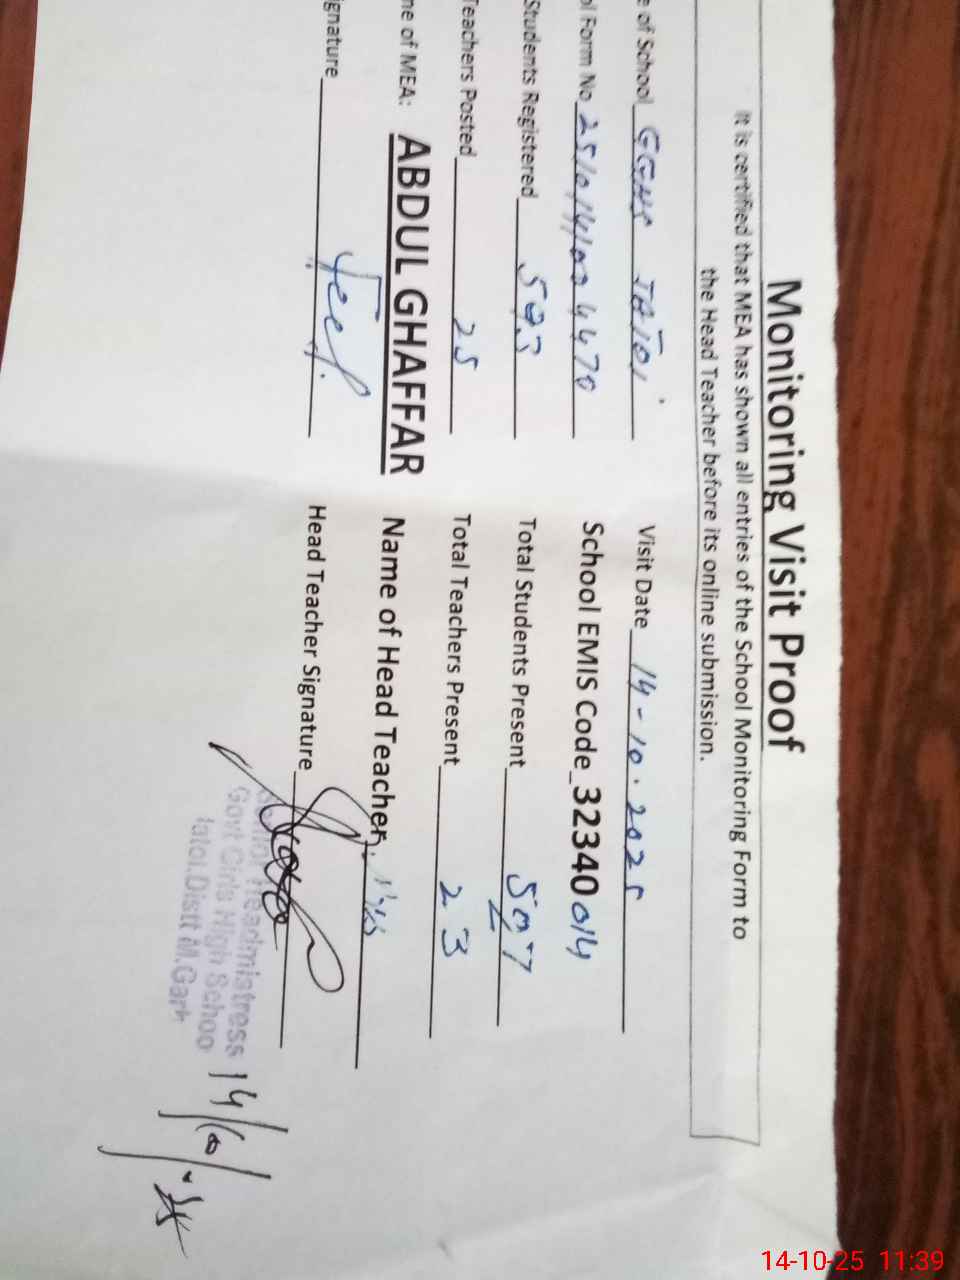 Monitoring Visit Proof
It is certified that MEA has shown all entries of the School Monitoring Form to
the Head Teacher before its online submission.
e of School GGHS JATOI Visit Date 14-10-2025
ol Form No School EMIS Code_32340014
Students Registered 593 Total Students Present 507
Teachers Posted 25 Total Teachers Present 23
me of MEA: ABDUL GHAFFAR Name of Head Teacher
ignature Head Teacher Signature
Headmistress
Govt Girls High Schoo
Jatoi.Distt M.Garh
14/10/
14-10-25 11:39